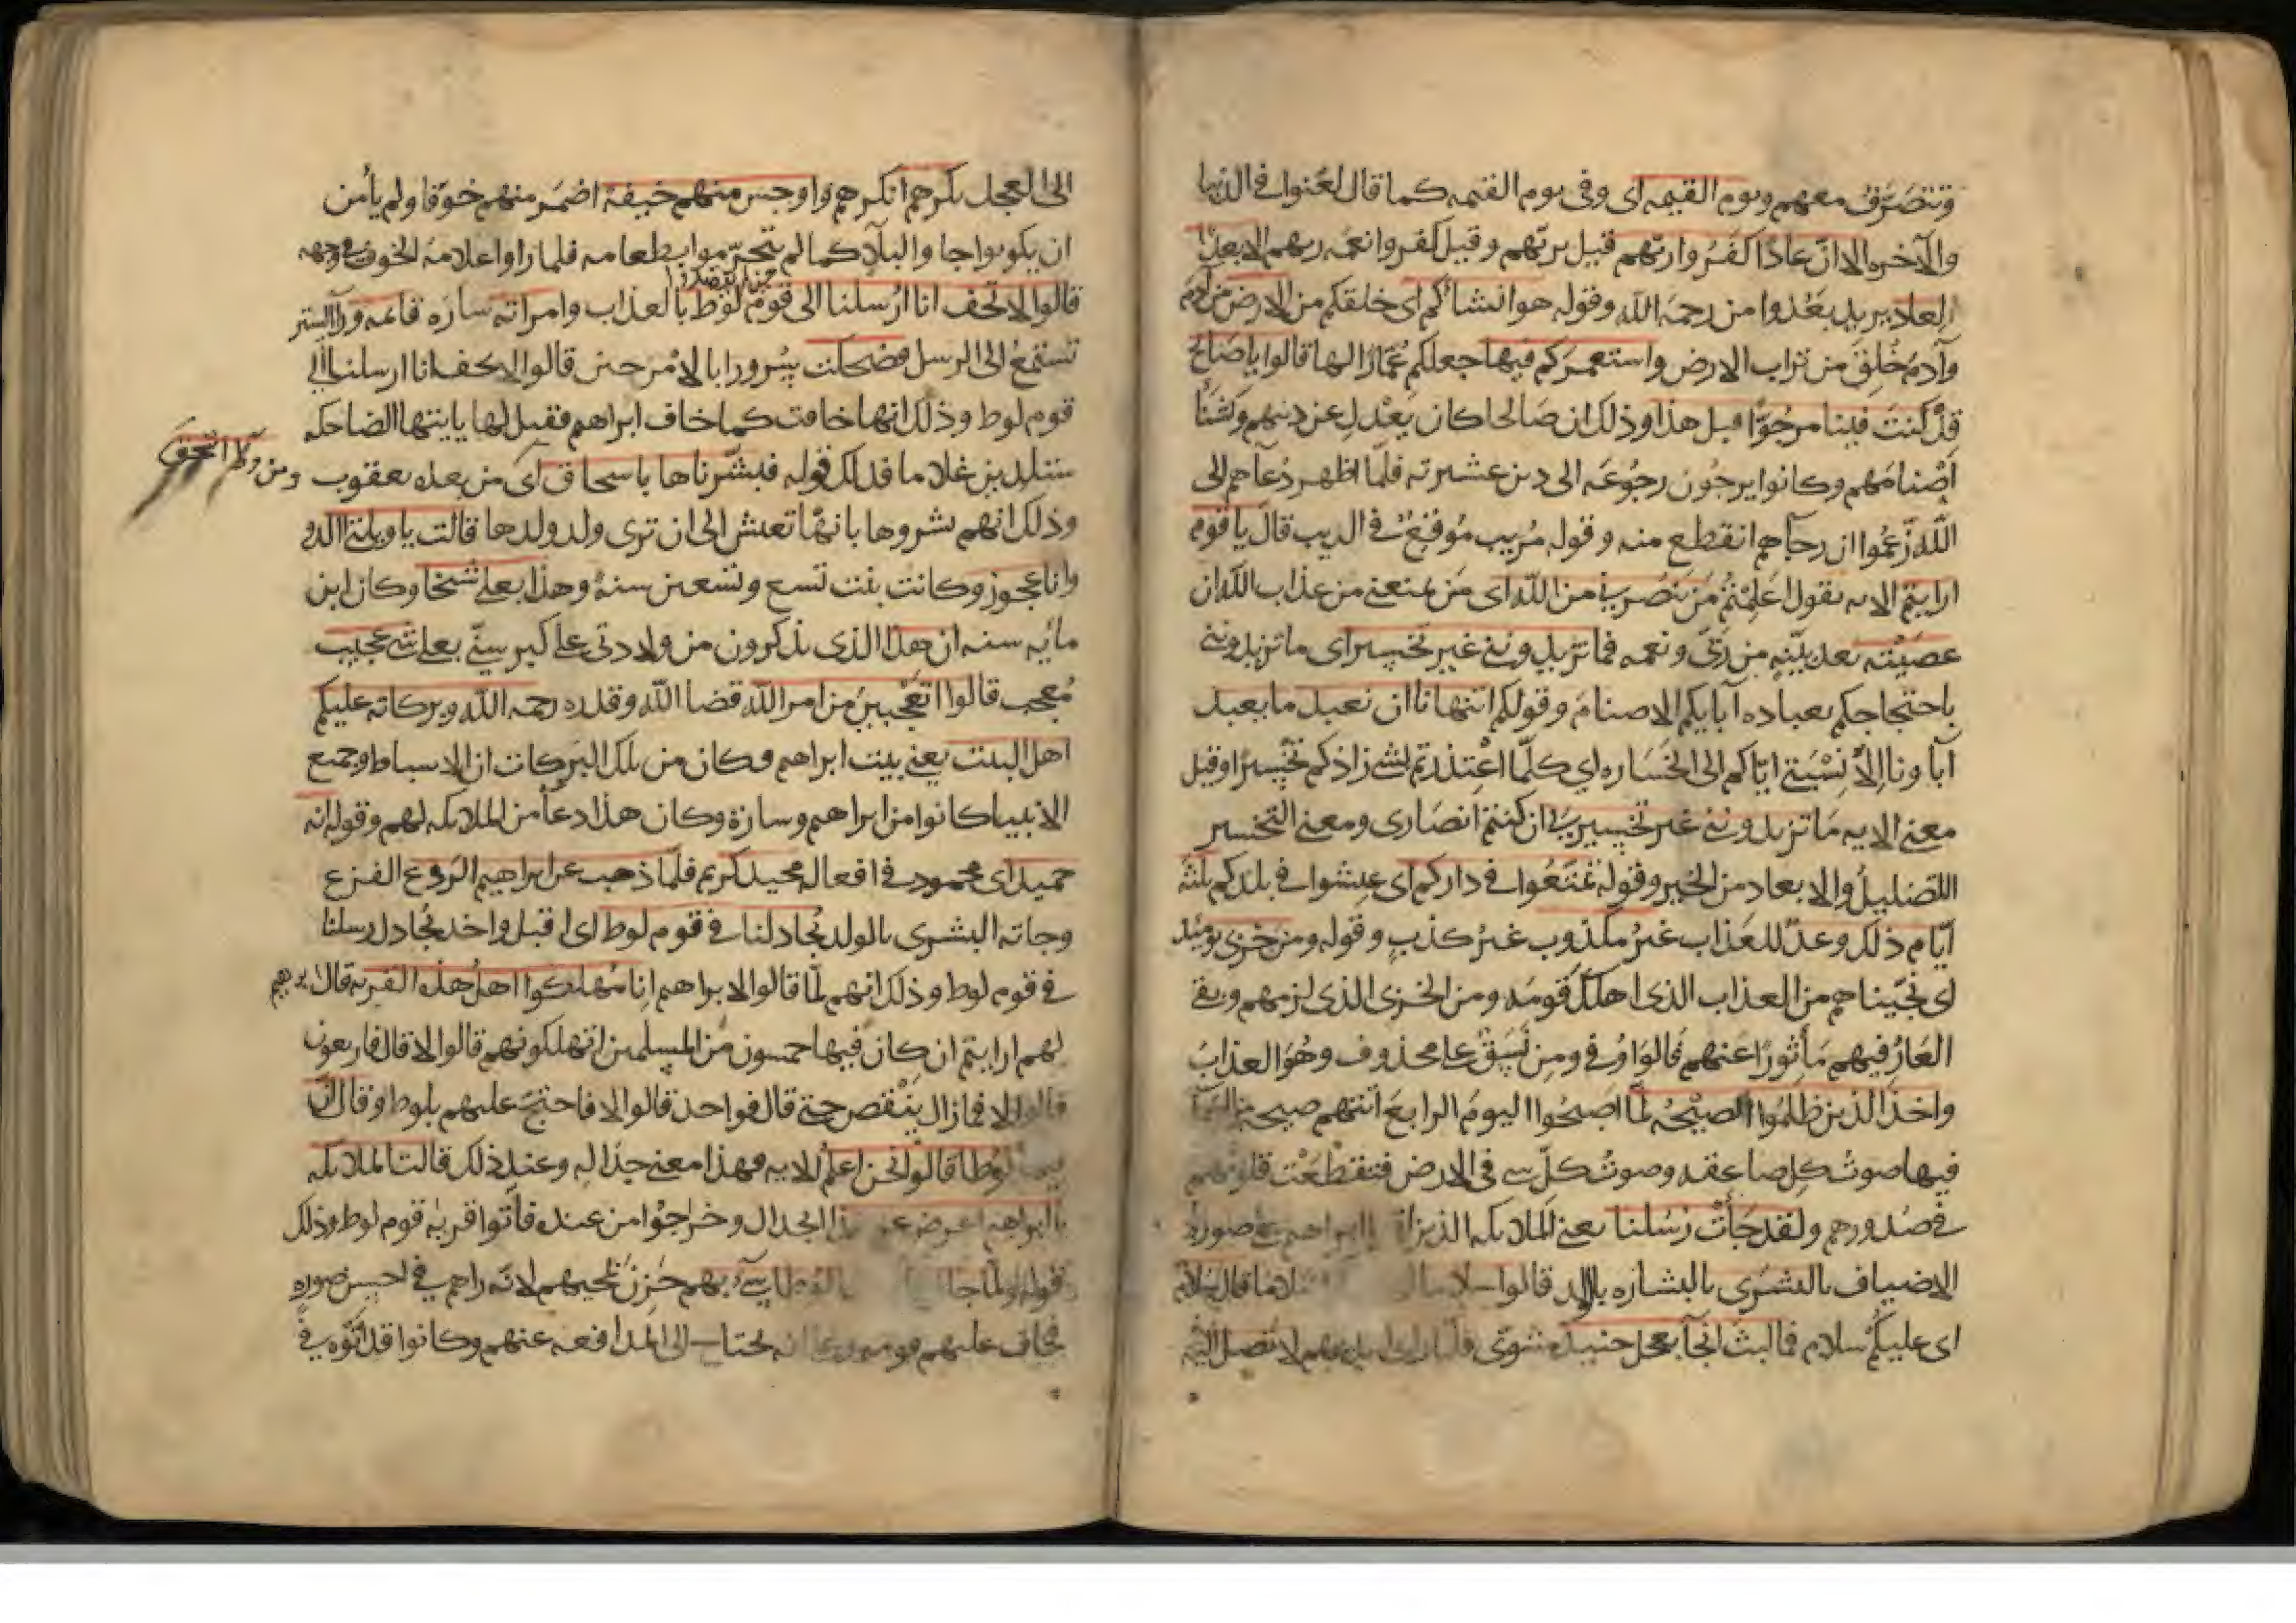 وتنصرف معهم ويوم القيمه اى وفى يوم القيمه كما قال لعنوا فى الدنيا
والآخره الا ان عادًا كفروا ربهم قيل بربهم وقيل كفروا نعمه ربهم الا بعدًا
لعاد يريد بعدوا من رحمة الله وقوله هو انشاكم اى خلقكم من الارض من آدم
وآدم خلق من تراب الارض واستعمركم فيها جعلكم عمارًا لها قالوا يا صالح
قد كنت فينا مرجوًا قبل هذا وذلك ان صالحا كان يعدل عن دينهم ويشنأ
اصنامهم وكانوا يرجون رجوعه الى دين عشيرته فلمّا اظهر دعآهم الى
الله زعموا ان رجآهم انقطع منه وقوله مريب موقع فى الريب قال يا قوم
ارايتم الايه يقول اعلمتم من ينصرنى من الله اى من يمنعنى من عذاب الله ان
عصيته بعد بيّنه من ربّى ونعمه فما تزيدوننى غير تخسير اى ما تزيدوننى
باحتجاجكم بعباده آبايكم الاصنام وقولكم اتنهانا ان نعبد ما يعبد
آباونا الا نسبتى اياكم الى الخساره اي كلّما اعتذرتم بشى زادكم تخسيرًا وقيل
معنى الايه ما تزيدوننى غير تخسير لى ان كنتم انصارى ومعنى التخسير
التضليل والابعاد من الخير وقوله تمتّعوا فى داركم اى عيشوا فى بلدكم ثلثه
ايّام ذلك وعدٌ للعذاب غير مكذوب غير كذب وقوله ومن خزى يومئذ
اى نجّيناهم من العذاب الذى اهلك قومه ومن الخزى الذى لزمهم وبقى
العار فيهم مأثورًا عنهم فالواو فى ومن نسق على محذوف وهو العذاب
واخذ الذين ظلموا الصيحه لمّا اصبحوا اليوم الرابع اتتهم صيحه من السمآ
فيها صوت كل صاعقه وصوت كلّ شى فى الارض فتقطعت قلوبهم
فى صدورهم ولقد جآت رسلنا يعنى الملايكه الذين ابراهيم على صوره
الاضياف بالبشرى بالبشاره بالولد قالوا سلاما قال سلام
اى عليكم سلام فما لبث ان جآ بعجل حنيذ مشوى فلمّا راى ايديهم لا تصل اليه
الى العجل نكرهم انكرهم واوجس منهم خيفة اضمر منهم خوفا ولم يأمن
ان يكونوا جاوا لبلآ كما لم يتحرّموا بطعامه فلما راوا علامة الخوف فى وجهه
قالوا لا تخف انا ارسلنا الى قوم لوط بالعذاب وامراته ساره قايمه ورآ الستر
تستمع الى الرسل فضحكت سرورا بالامن حين قالوا لا تخف انا ارسلنا الى
قوم لوط وذلك انها خافت كما خاف ابراهيم فقيل لها يا ايتها الضاحكه
ستلدين غلاما فذلك قوله فبشّرناها باسحاق اى من بعده يعقوب
ومن ورآ اسحق
وذلك انهم بشروها بانّها تعيش الى ان ترى ولد ولدها قالت يا ويلتى االد
وانا عجوز وكانت بنت تسع وتسعين سنة وهذا بعلى شيخا وكان ابن
مايه سنه ان هذا الذى تذكرون من ولادتى على كبر سنّى بعلى شى عجيب
معجب قالوا اتعجبين من امر الله قضا الله وقدره رحمه الله وبركاته عليكم
اهل البيت يعنى بيت ابراهيم فكان من تلك البركات ان الاسباط وجميع
الانبيا كانوا من ابراهيم وسارة وكان هذا دعآ من الملايكه لهم وقوله انه
حميد اى محمود فى افعاله مجيد كريم فلمّا ذهب عن ابراهيم الرّوع الفزع
وجاته البشرى بالولد يجادلنا فى قوم لوط اى اقبل واخذ يجادل رسلنا
فى قوم لوط وذلك انهم لمّا قالوا لابراهيم انا مهلكوا اهل هذه القريه قال
لهم ارايتم ان كان فيها خمسون من المسلمين اتهلكونهم قالوا لا قال فاربعون
قالوا لا فما زال ينقص حتى قال فواحد قالوا لا فاحتجّ عليهم بلوط وقال ان
فيها لوطا قالوا نحن اعلم الايه فهذا معنى جداله وعند ذلك قالت الملايكه
يا ابراهيم اعرض عن هذا الجدال وخرجوا من عنده فأتوا قرية قوم لوط وذلك
قوله ولما جات رسلنا لوطا سىء بهم حزن لمجيهم لانه راهم فى احسن صوره
فخاف عليهم قومه وعلم انه يحتاج الى المدافعه عنهم وكانوا قد اتوه فى